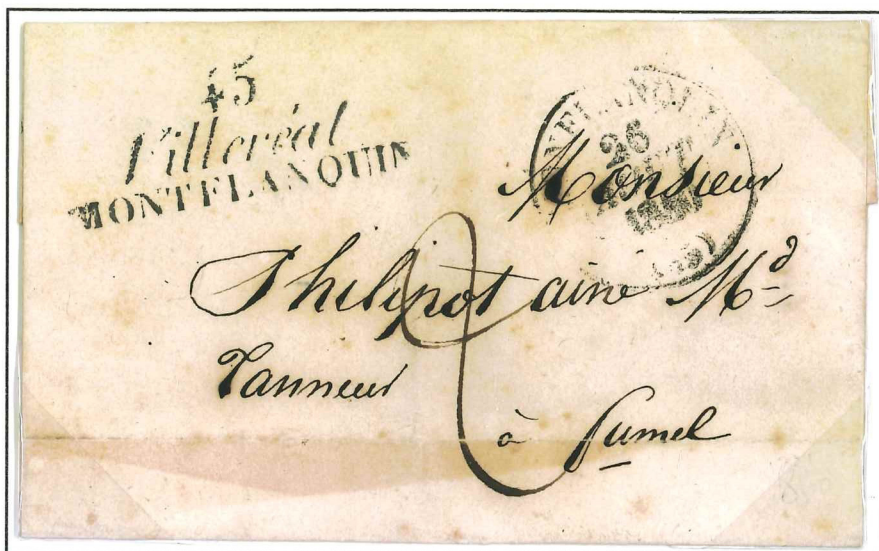 45
Villeréal
MONTFLANQUIN
26
Monsieur
Philipot ainé Md
Tanneur
2
à Fumel